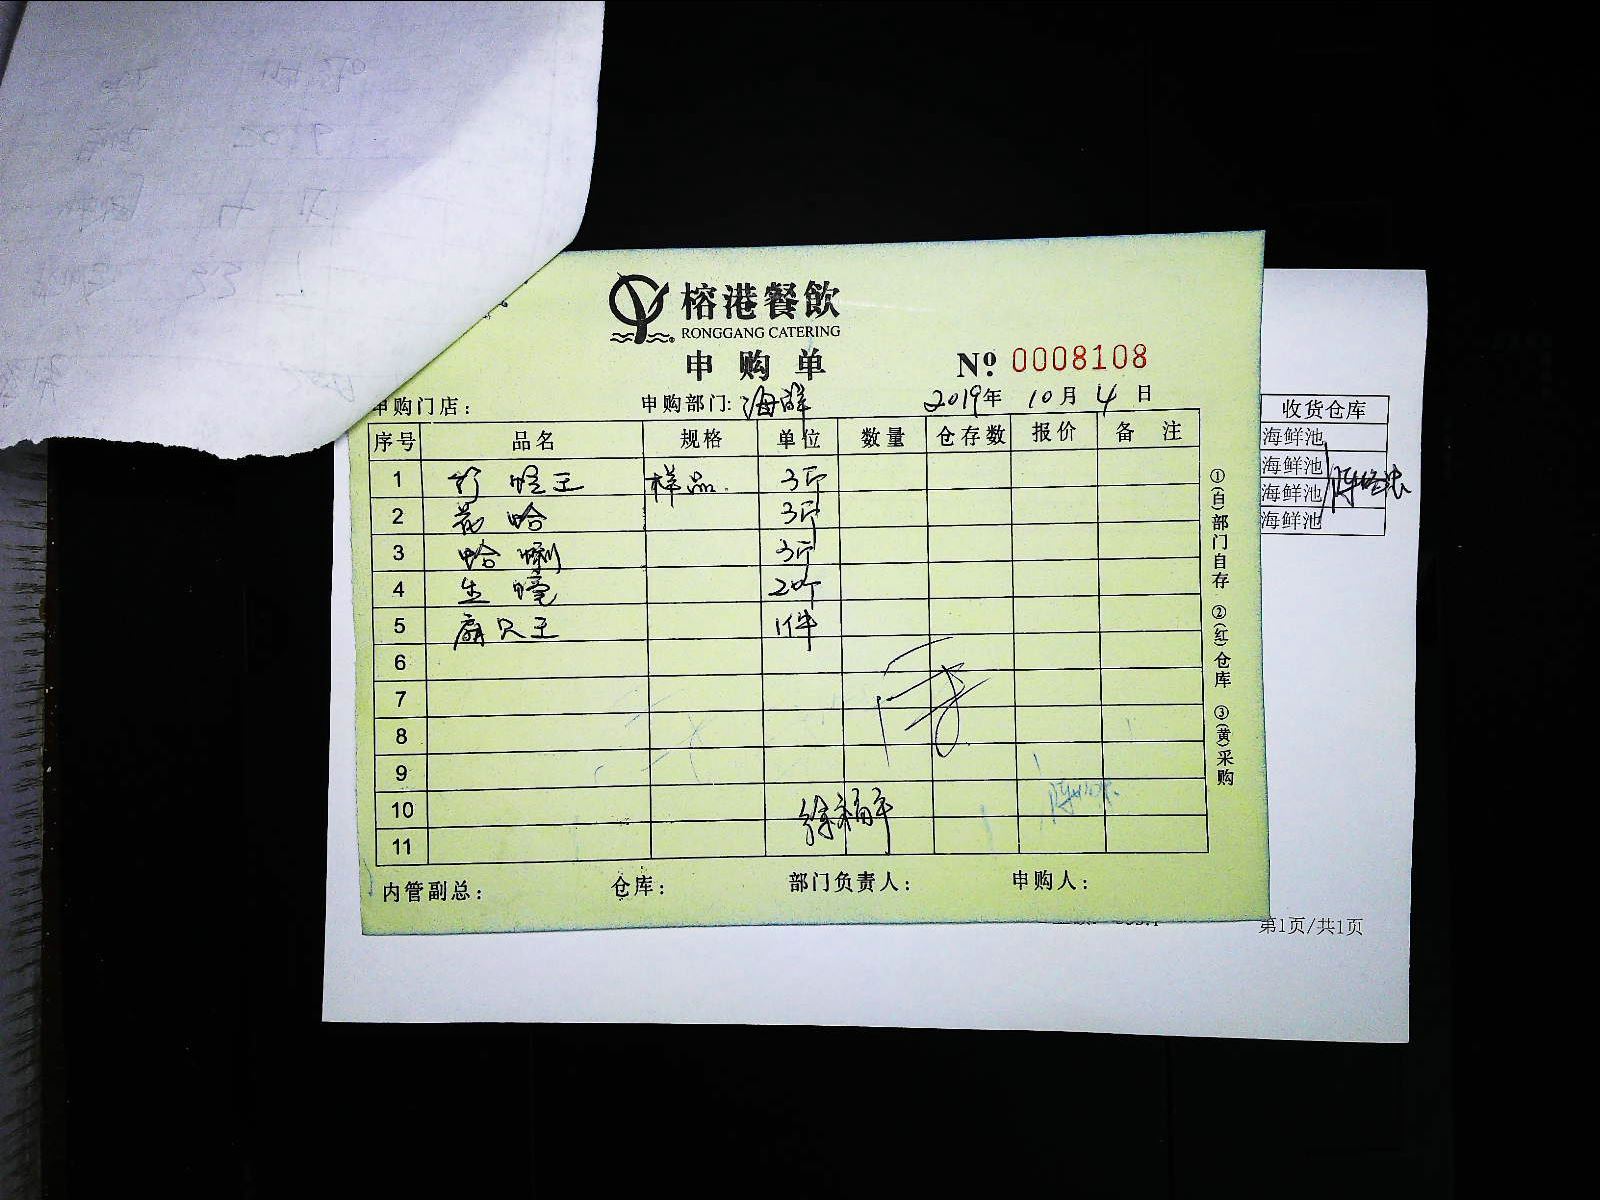 榕港餐飲
RONGGANG CATERING
申购单 Nº 0008108
申购门店： 申购部门：海鲜 2019年 10月 4日
序号 品名 规格 单位 数量 仓存数 报价 备注
1 蛏王 样品 3斤
2 花哈 3斤
3 蛤蜊 3斤
4 生蠔 20斤
5 扇贝王 1件
6
7
8
9
10 徐福平
11
内管副总： 仓库： 部门负责人： 申购人：
①(白)部门自存 ②(红)仓库 ③(黄)采购
收货仓库
海鲜池
海鲜池
海鲜池
海鲜池
第1页/共1页